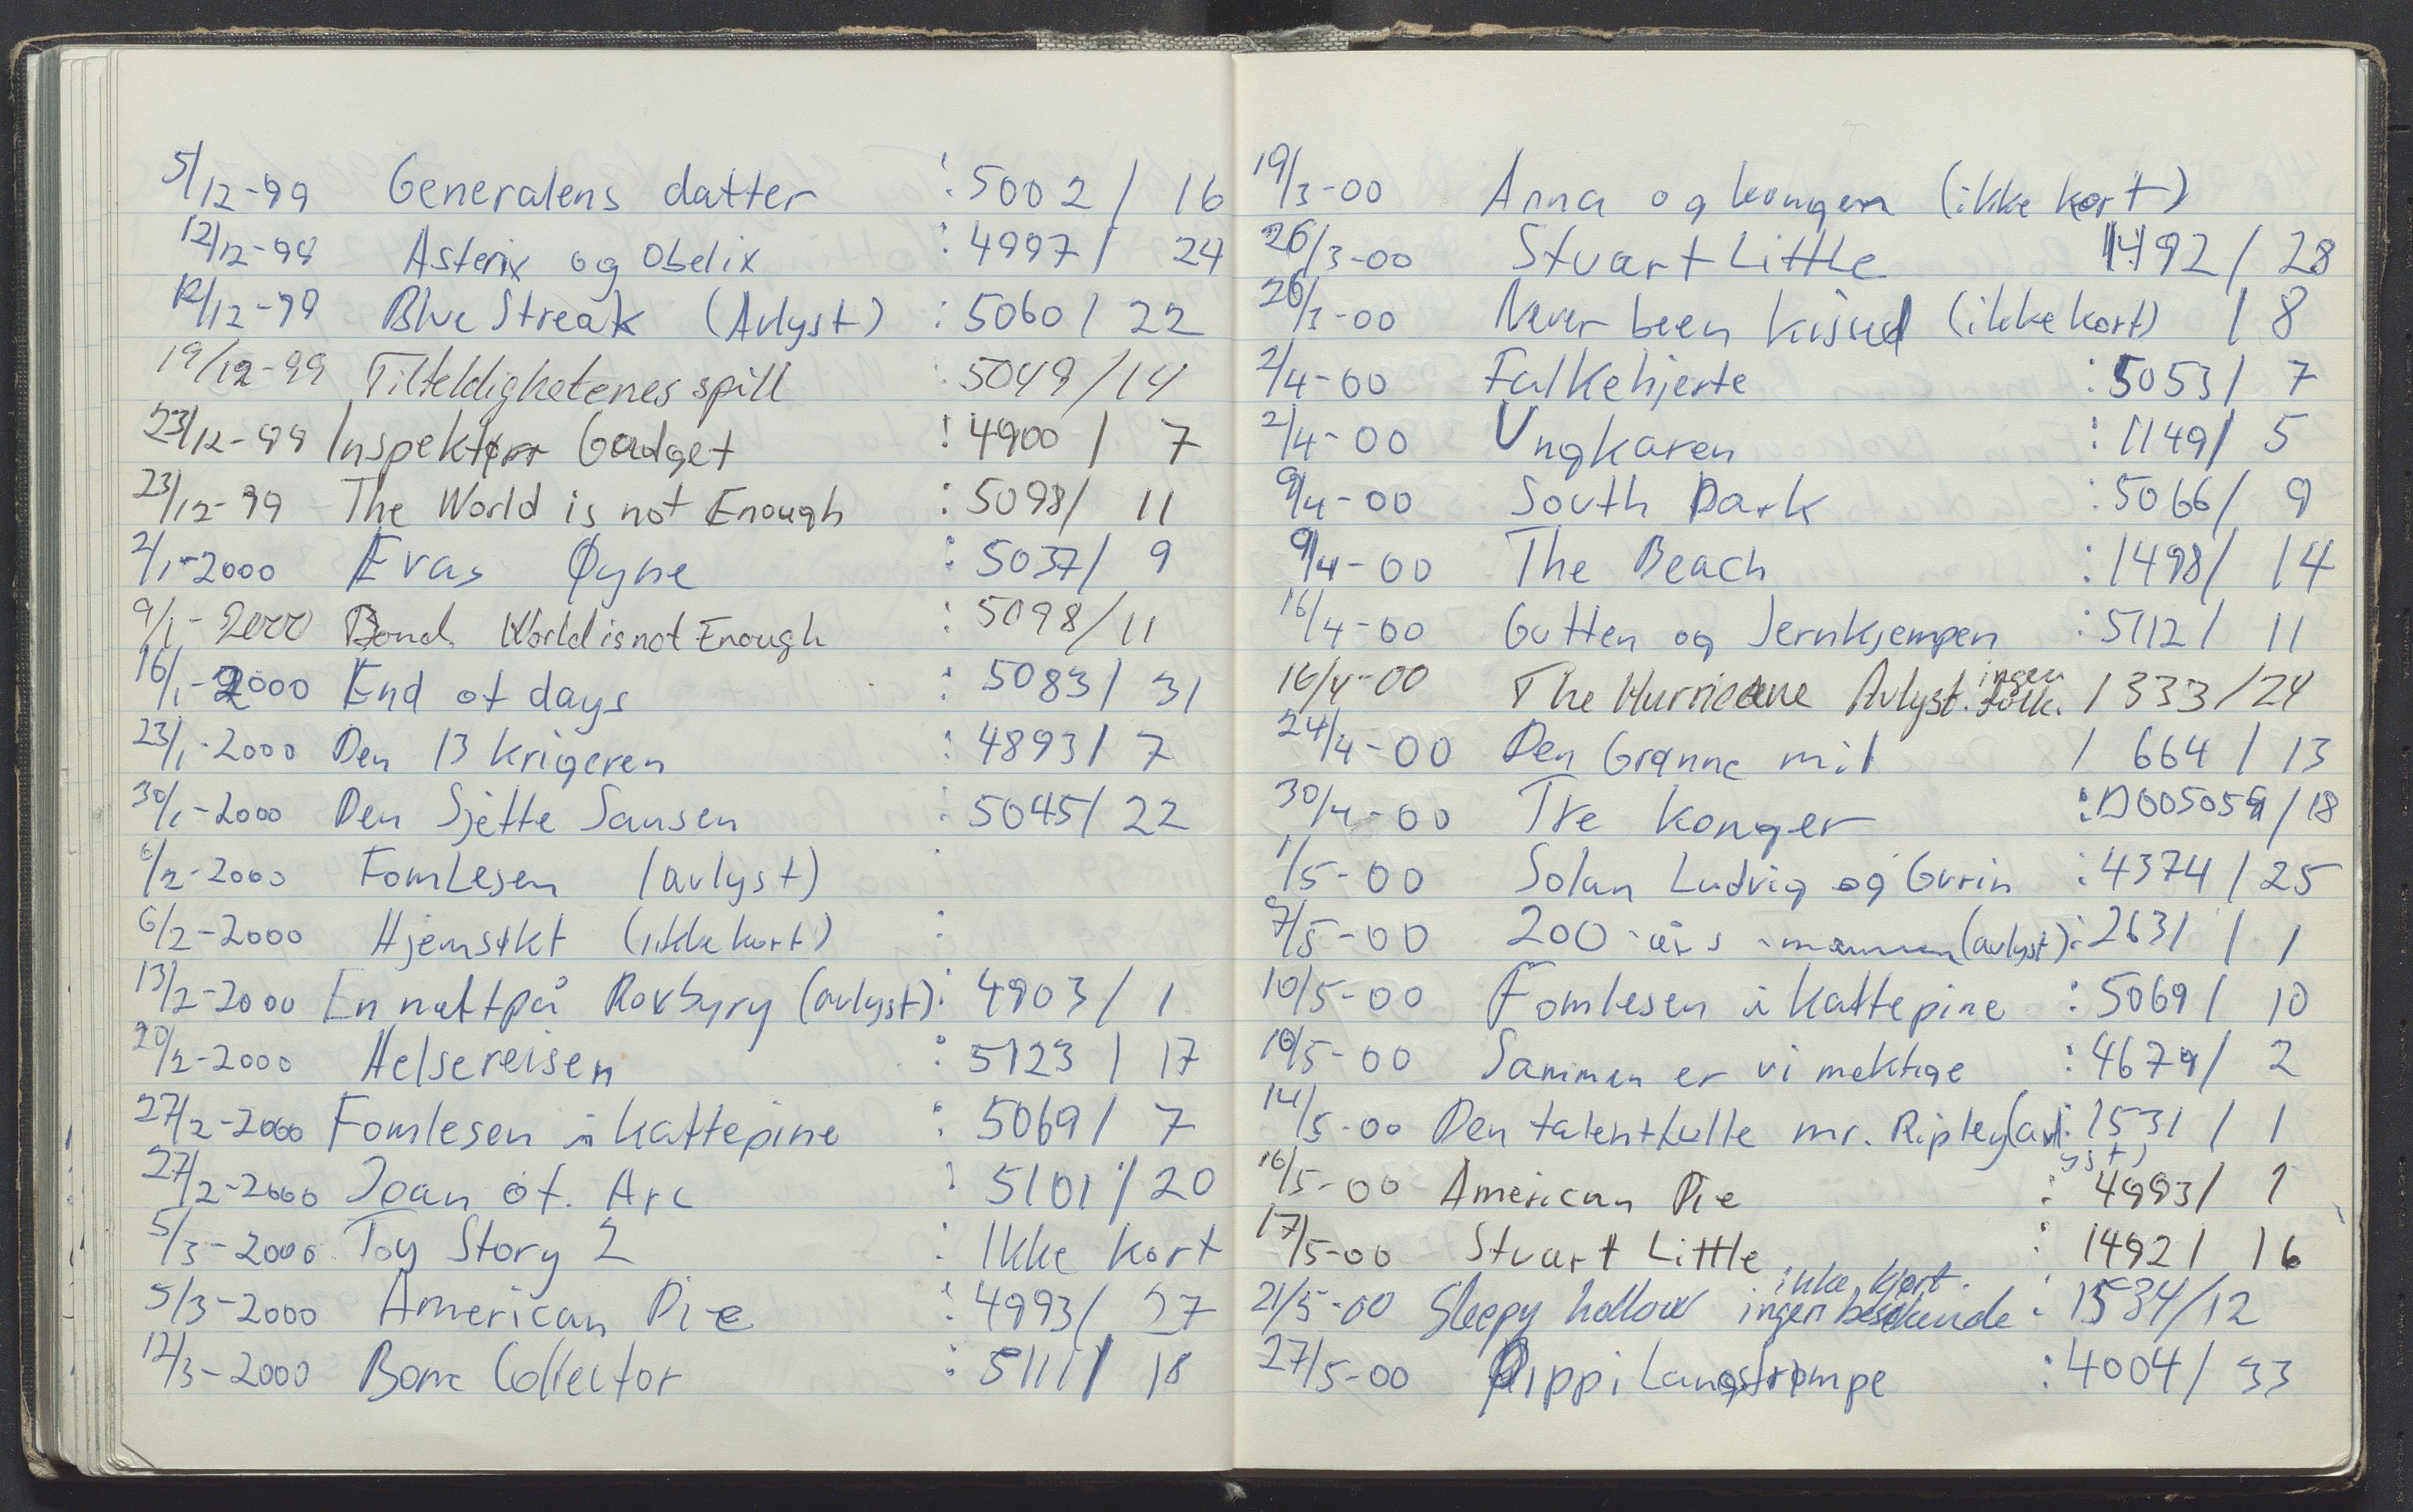 5/12-99 Generalens datter : 5002 / 16
12/12-99 Asterix og Obelix : 4997 / 24
12/12-99 Blue Streak (Avlyst) : 5060 / 22
19/12-99 Tilfeldighetenes spill : 5049 / 14
23/12-99 Inspektør Gadget : 4900 / 7
23/12-99 The World is not Enough : 5098 / 11
2/1-2000 Evas Øyne : 5037 / 9
9/1-2000 Bond World is not Enough : 5098 / 11
16/1-2000 End of days : 5083 / 31
23/1-2000 Den 13 krigeren : 4893 / 7
30/1-2000 Den Sjette Sansen : 5045 / 22
6/2-2000 Fomlesen (avlyst)
6/2-2000 Hjemsøkt (ikke kort) :
13/2-2000 En natt på Roxbyry (avlyst) : 4903 / 1
20/2-2000 Helsereisen : 5123 / 17
27/2-2000 Fomlesen i kattepine : 5069 / 7
27/2-2000 Joan of. Arc : 5101 / 20
5/3-2000 Toy Story 2 : Ikke kort
5/3-2000 American Pie : 4993 / 27
12/3-2000 Bone Collector : 5111 / 18
19/3-00 Anna og kongen (ikke kort)
26/3-00 Stuart Little 1492 / 28
26/3-00 Never been kissed (ikke kort) / 8
2/4-00 Falkehjerte : 5053 / 7
2/4-00 Ungkaren : 1149 / 5
9/4-00 South Park : 5066 / 9
9/4-00 The Beach : 1498 / 14
16/4-00 Gutten og Jernkjempen : 5112 / 11
16/4-00 The Hurricane Avlyst. ingen folk. 1333 / 24
24/4-00 Den Grønne mil 1664 / 13
30/4-00 Tre konger : D005059 / 18
1/5-00 Solan Ludvig og Gurin : 4374 / 25
7/5-00 200-års-mannen (avlyst) : 2631 / 1
10/5-00 Fomlesen i kattepine : 5069 / 10
10/5-00 Sammen er vi mektige : 4679 / 2
14/5-00 Den talentfulle mr. Ripley (avlyst) : 1531 / 1
16/5-00 American Pie : 4993 / 1
17/5-00 Stuart Little : 1492 / 16
21/5-00 Sleepy hollow ikke kjørt. ingen besøkende : 1534 / 12
27/5-00 Pippi Langstrømpe : 4004 / 33